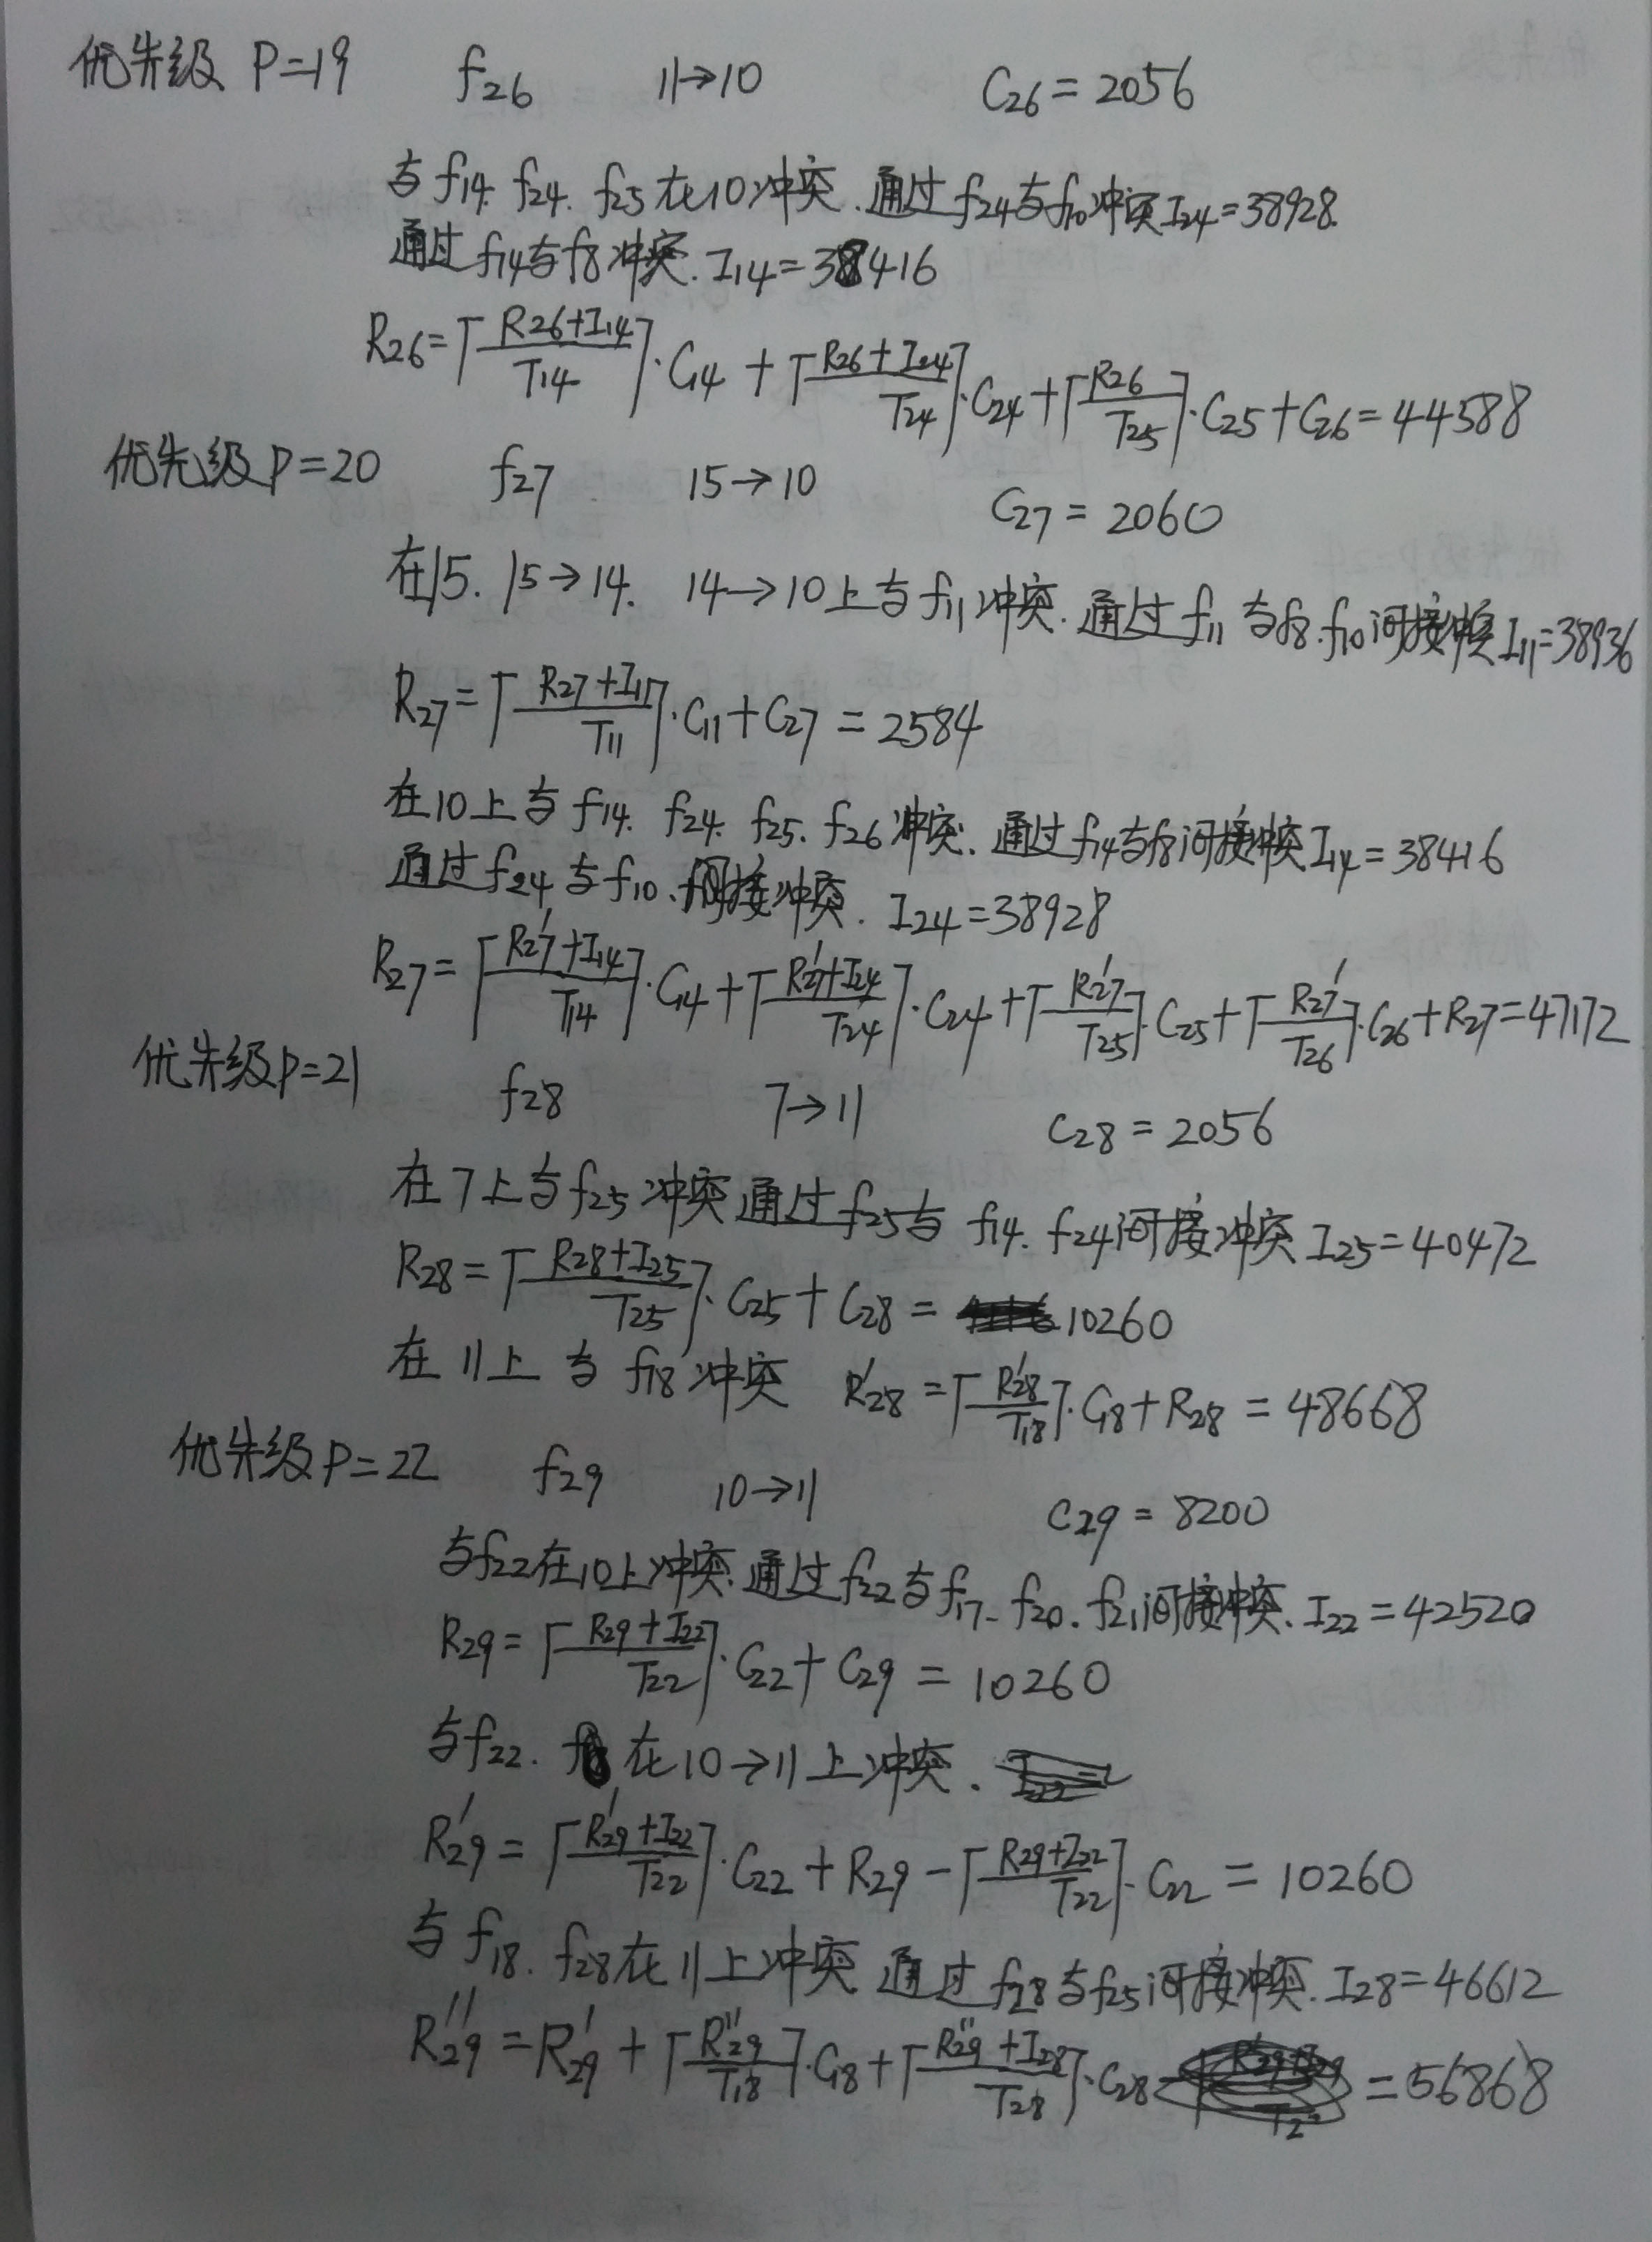 优先级 P=19 f26 11→10 C26=2056
与f14. f24. f25在10冲突. 通过f24与f10冲突 I24=38928.
通过f14与f8冲突. I14=38416
R26=⌈(R26+I14)/T14⌉·C14+⌈(R26+I24)/T24⌉·C24+⌈R26/T25⌉·C25+C26=44588
优先级 P=20 f27 15→10 C27=2060
在15. 15→14. 14→10上与f11冲突. 通过f11与f8.f10间接冲突I11=38936
R27=⌈(R27+I11)/T11⌉·C11+C27=2584
在10上与f14. f24. f25. f26冲突. 通过f14与f8间接冲突I14=38416
通过f24与f10.间接冲突. I24=38928
R27=⌈(R27'+I14)/T14⌉·C14+⌈(R27'+I24)/T24⌉·C24+⌈R27'/T25⌉·C25+⌈R27'/T26⌉·C26+R27=47172
优先级P=21 f28 7→11 C28=2056
在7上与f25冲突通过f25与f14. f24间接冲突 I25=40472
R28=⌈(R28+I25)/T25⌉·C25+C28=10260
在11上与f18冲突 R'28=⌈R'28/T18⌉·C18+R28=48668
优先级P=22 f29 10→11 C29=8200
与f22在10上冲突.通过f22与f17. f20. f21间接冲突. I22=42520
R29=⌈(R29+I22)/T22⌉·C22+C29=10260
与f22. 在10→11上冲突.
R'29=⌈(R'29+I22)/T22⌉·C22+R29-⌈(R29+I22)/T22⌉·C22=10260
与f18. f28在11上冲突 通过f28与f25间接冲突. I28=46612
R''29=R'29+⌈R''29/T18⌉·C18+⌈(R''29+I28)/T28⌉·C28=56868